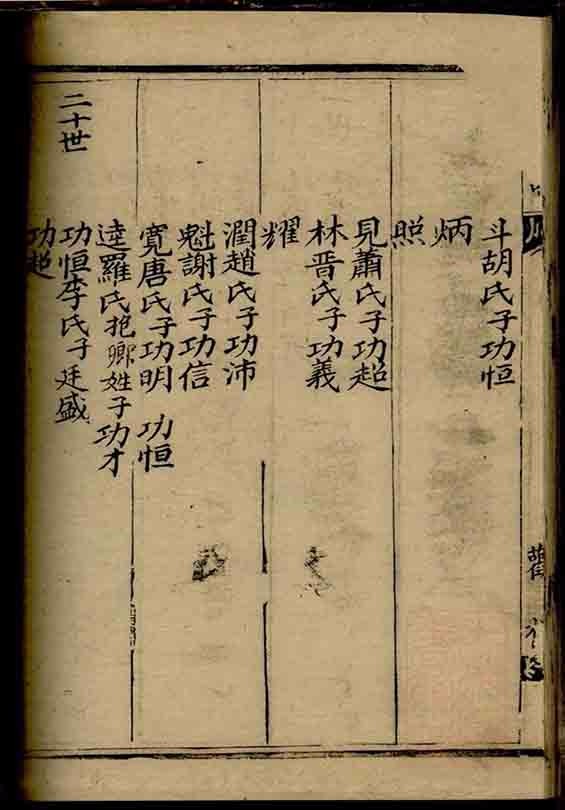 斗胡氏子功恒
炳
照
見蕭氏子功超
林晋氏子功義
耀
潤趙氏子功沛
魁謝氏子功信
寛唐氏子功明 功恒
逵羅氏抱鄉姓子功才
二十世
功恒李氏子廷盛
功超